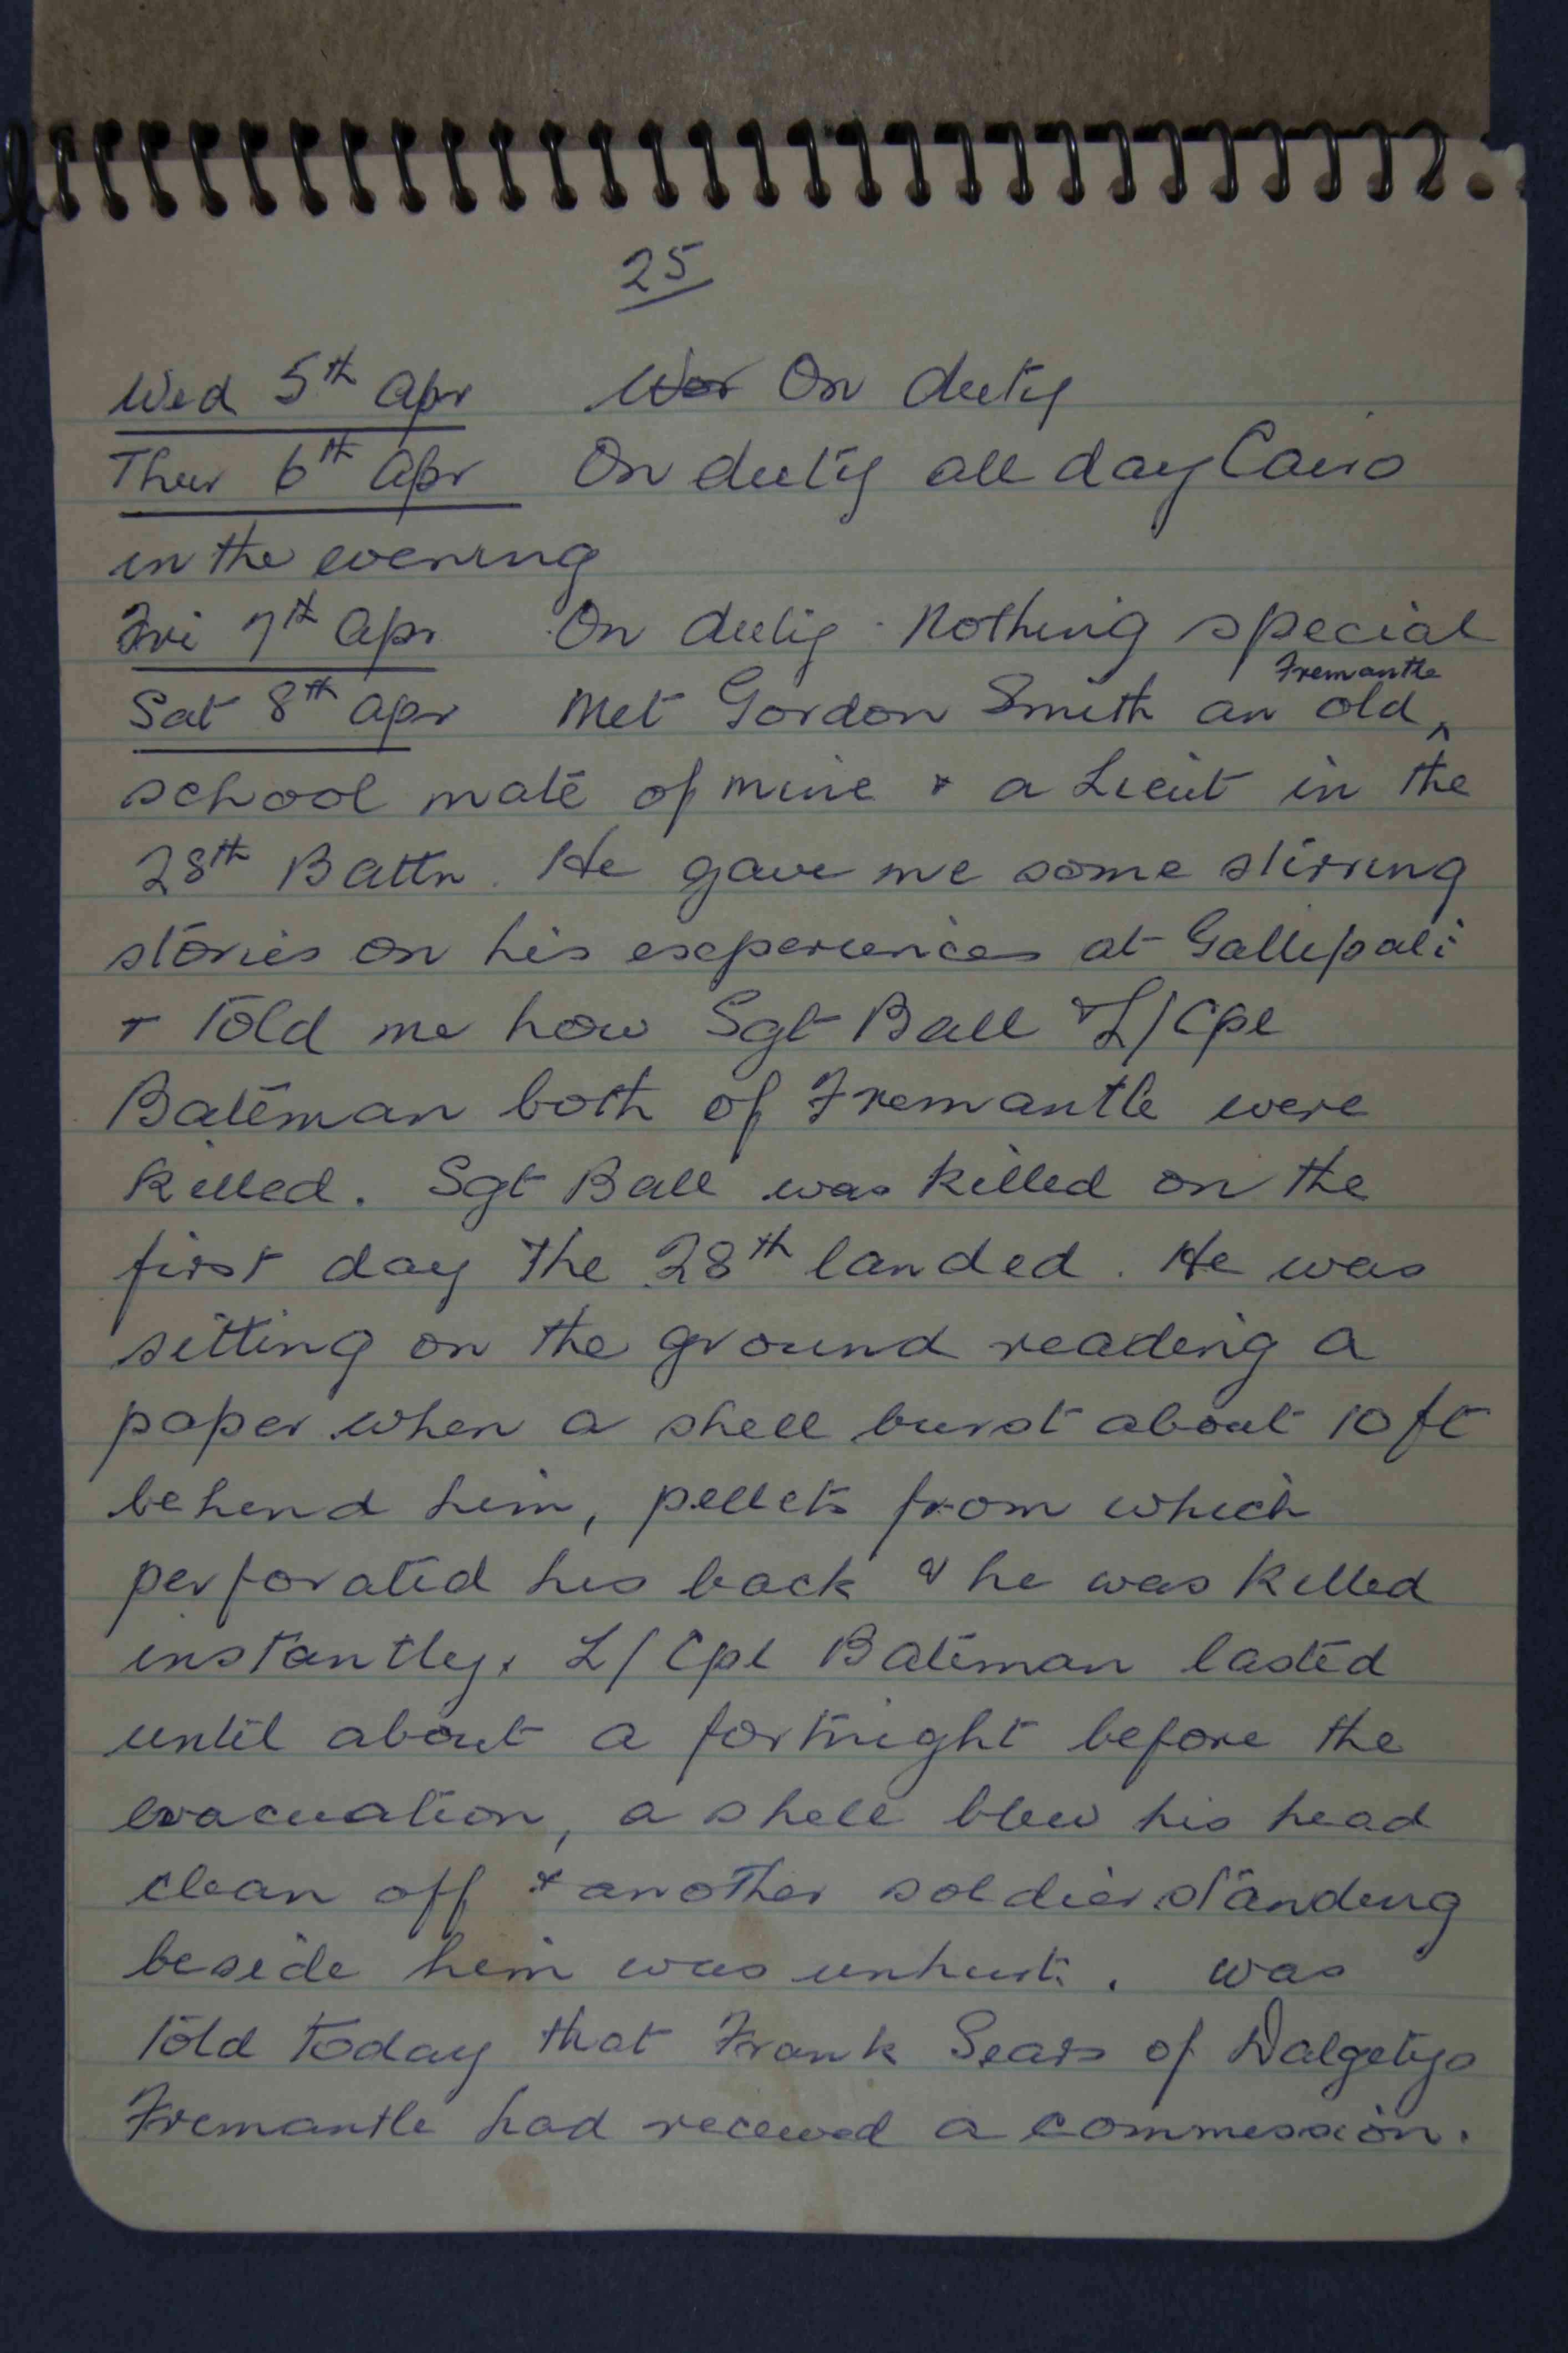 25
Wed 5th Apr Wor On duty
Thur 6th Apr On duty all day Cairo
in the evening
Fri 7th Apr On duty. Nothing special
Sat 8th Apr Met Gordon Smith an old Fremantle
school mate of mine & a Lieut in the
28th Battn. He gave me some stirring
stories on his experiences at Gallipali
& told me how Sgt Ball & L/Cpl
Bateman both of Fremantle were
killed. Sgt Ball was killed on the
first day the 28th landed. He was
sitting on the ground reading a
paper when a shell burst about 10 ft
behind him, pellets from which
perforated his back & he was killed
instantly. L/Cpl Bateman lasted
until about a fortnight before the
evacuation, a shell blew his head
clean off & another soldier standing
beside him was unhurt. was
told today that Frank Sears of Dalgetys
Fremantle had received a commission.